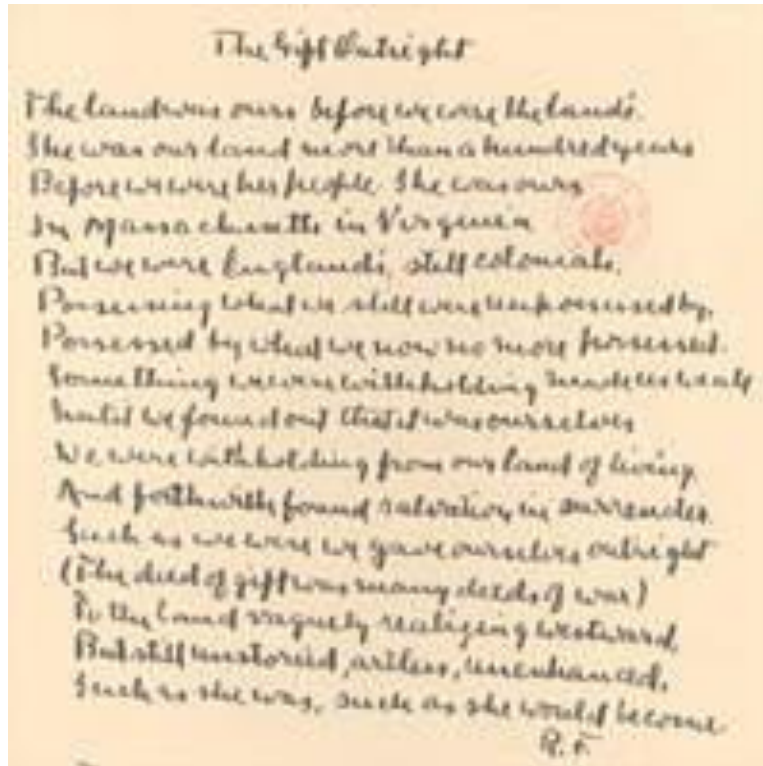 The Gift Outright
The land was ours before we were the land's.
She was our land more than a hundred years
Before we were her people. She was ours
In Massachusetts in Virginia
But we were England's, still colonials,
Possessing what we still were unpossessed by,
Possessed by what we now no more possessed.
Something we were withholding made us weak
Until we found out that it was ourselves
We were withholding from our land of living
And forthwith found salvation in surrender.
Such as we were we gave ourselves outright
(The deed of gift was many deeds of war)
To the land vaguely realizing westward,
But still unstoried, artless, unenhanced,
Such as she was, such as she would become
R. F.